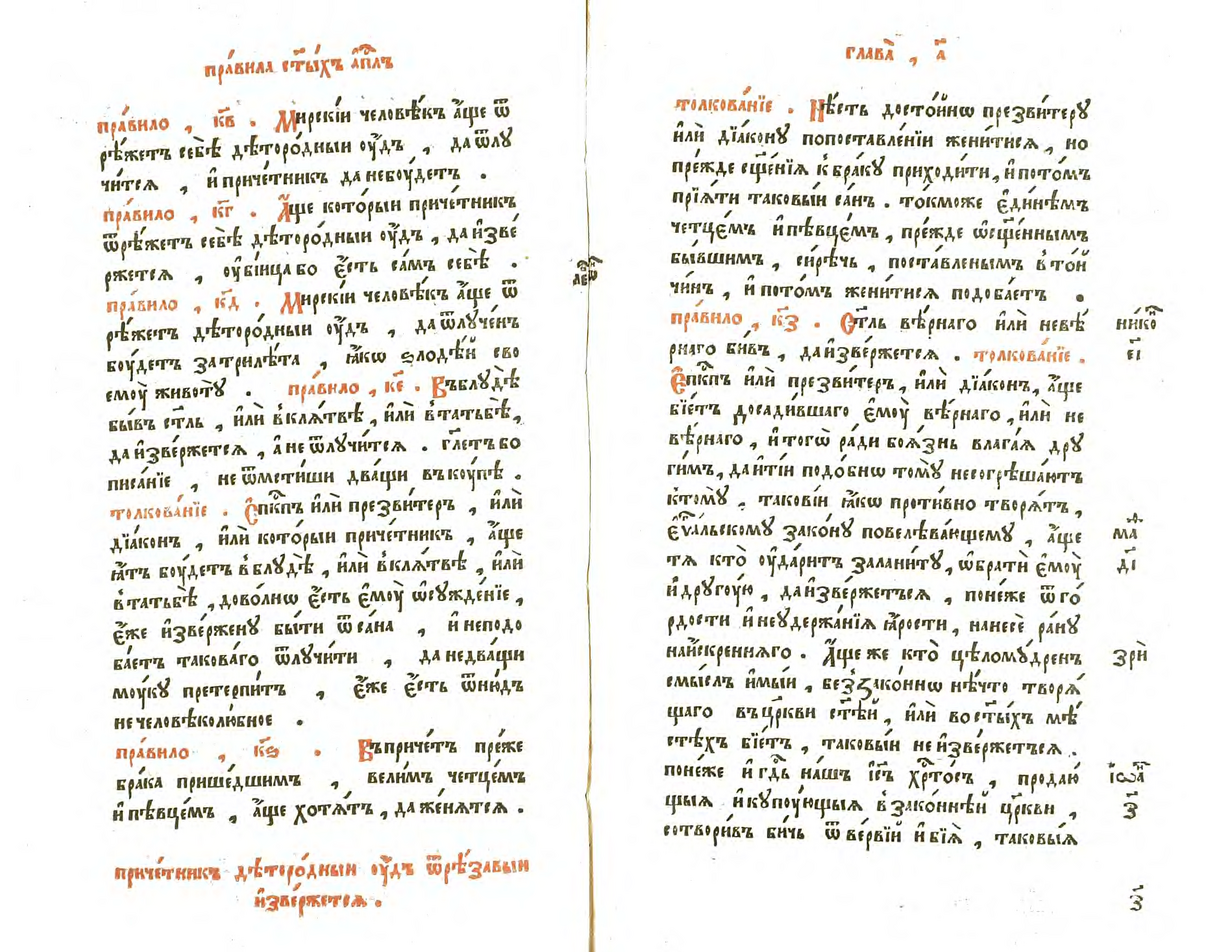 пра́вила ст҃ы́хъ а҆пⷭ҇лъ
пра́вило , к҃в . Мирскі́и человѣ́къ а҆́ще ѿ
рѣ́жетъ себѣ̀ дѣторо́дныи ᲂу҆́дъ , да ѿлꙋ
чи́тсѧ , и҆ приче́тникъ да небꙋ́детъ .
пра́вило , к҃г . А҆́ще кото́рыи приче́тникъ
ѿрѣ́жетъ себѣ̀ дѣторо́дныи ᲂу҆́дъ , да и҆зве́
ржетсѧ , ᲂу҆бі́ица бо є҆́сть са́мъ себѣ̀ .
пра́вило , к҃д . Мирскі́и человѣ́къ а҆́ще ѿ
рѣ́жетъ дѣторо́дныи ᲂу҆́дъ , да ѿлꙋче́нъ
бꙋ́детъ за три лѣ́та , ꙗ҆́кѡ ѕлодѣ́й сво
емꙋ̀ животꙋ̀ . пра́вило , к҃е . Въ блꙋ́дѣ
бы́въ ст҃ль , и҆лѝ в клѧ́твѣ , и҆лѝ в татьбѣ̀ ,
да и҆зве́ржетсѧ , а҆ не ѿлꙋчи́тсѧ . гл҃етъ бо
писа́нїе , не ѿмсти́ши два́щи въкꙋ́пѣ .
толкова́нїе . Є҆пⷭ҇кпъ и҆лѝ презви́теръ , и҆лѝ
дїа́конъ , и҆лѝ кото́рыи приче́тникъ , а҆́ще
ꙗ҆́тъ бꙋ́детъ в блꙋ́дѣ , и҆лѝ в клѧ́твѣ , и҆лѝ
в татьбѣ̀ , дово́лно є҆́сть є҆мꙋ̀ ѡ҆сꙋжде́нїе ,
є҆́же и҆зве́рженꙋ бы́ти ѿ са́на , и҆ неподо
ба́етъ такова́го ѿлꙋчи́ти , да не два́щи
мꙋ́кꙋ претерпи́тъ , є҆́же є҆́сть ѿню́дъ
не человѣколю́бное .
пра́вило , к҃ѕ . Въ приче́тъ пре́же
бра́ка прише́дшимъ , вели́мъ четце́мъ
и҆ пѣвце́мъ , а҆́ще хотѧ́тъ , да же́нѧтсѧ .
приче́тникъ дѣторо́дныи ᲂу҆́дъ ѿрѣ́завыи
и҆зве́ржетсѧ .
глава̀ , а҃
толкова́нїе . Нѣ́сть досто́йнѡ презви́терꙋ
и҆лѝ дїа́конꙋ по поставле́нїи жени́тисѧ , но
пре́жде сщ҃е́нїѧ к бра́кꙋ приходи́ти , и҆ пото́мъ
прїѧ́ти таковы́и са́нъ . токмо́же є҆ди́нѣмъ
четце́мъ и҆ пѣвце́мъ , пре́жде ѡ҆сщ҃е́ннымъ
бы́вшимъ , си́рѣчь , поста́вленымъ в то́й
чи́нъ , и҆ пото́мъ жени́тисѧ подоба́етъ .
пра́вило , к҃з . Ст҃ль вѣ́рнаго и҆лѝ невѣ́
рнаго би́въ , да и҆зве́ржетсѧ . толкова́нїе .
Є҆пⷭ҇кпъ и҆лѝ презви́теръ , и҆лѝ дїа́конъ , а҆́ще
бїе́тъ досади́вшаго є҆мꙋ̀ вѣ́рнаго , и҆лѝ не
вѣ́рнаго , и҆ тогѡ̀ ра́ди боѧ́знь влага́ѧ дрꙋ
ги́мъ , да и҆ ті́и подо́бнѡ томꙋ̀ не согрѣша́ютъ
к томꙋ̀ . такові́и ꙗ҆́кѡ проти́вно творѧ́тъ ,
є҆ѵⷢ҇а́льскомꙋ зако́нꙋ повелѣва́ющемꙋ , а҆́ще
тѧ кто̀ ᲂу҆да́ритъ за лани́тꙋ , ѡ҆брати́ є҆мꙋ̀
и҆ дрꙋгꙋ́ю , да и҆зве́ржетъсѧ , поне́же ѿ го́
рдости и҆ неꙋдержа́нїѧ ꙗ҆́рости , нанесѐ ра́нꙋ
на и҆́скреннѧго . А҆́ще же кто̀ цѣломꙋ́дренъ
смы́слъ и҆мы́и , беззако́ннѡ нѣ́что творѧ́
щаго въ цр҃кви ст҃ѣ́й , и҆лѝ во ст҃ы́хъ мѣ́
стѣхъ бїе́тъ , таковы́и не и҆зве́ржетъсѧ .
поне́же и҆ гдⷭ҇ь на́шъ і҆с҃ъ хрⷭ҇то́съ , продаю́
щыѧ и҆ кꙋпꙋ́ющыѧ в зако́ннѣй цр҃кви ,
сотвори́въ би́чь ѿ ве́рвїй и҆ бїѧ̀ , таковы́ѧ
нико́ⷩ҇
є҃і
маⷴ
д҃і
зрѝ
і҆ѡа́ⷩ҇
з҃
з҃